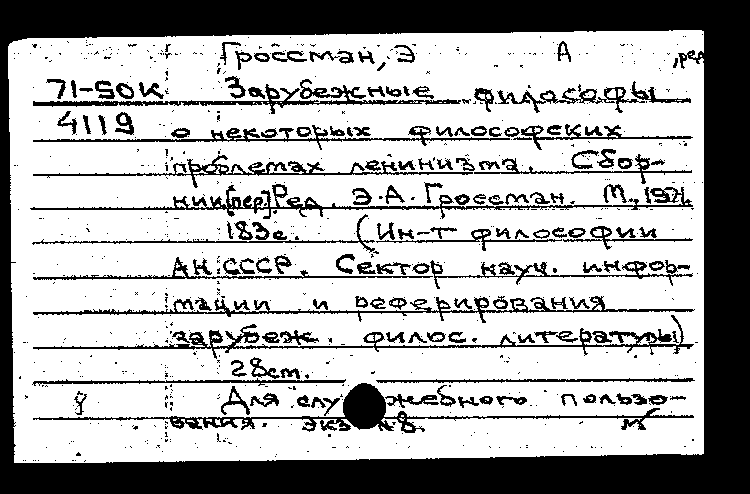 Гроссман, Э А ,ред
71-50К Зарубежные философы
4119 о некоторых философских
проблемах ленинизма. Сбор-
ник[пер]Ред. Э.А.Гроссман. М.,
183с. (Ин-т философии
АН СССР. Сектор науч. инфор-
мации и реферирования
зарубеж. филос. литературы)
28см.
Для служебного пользо-
вания. экз №8.